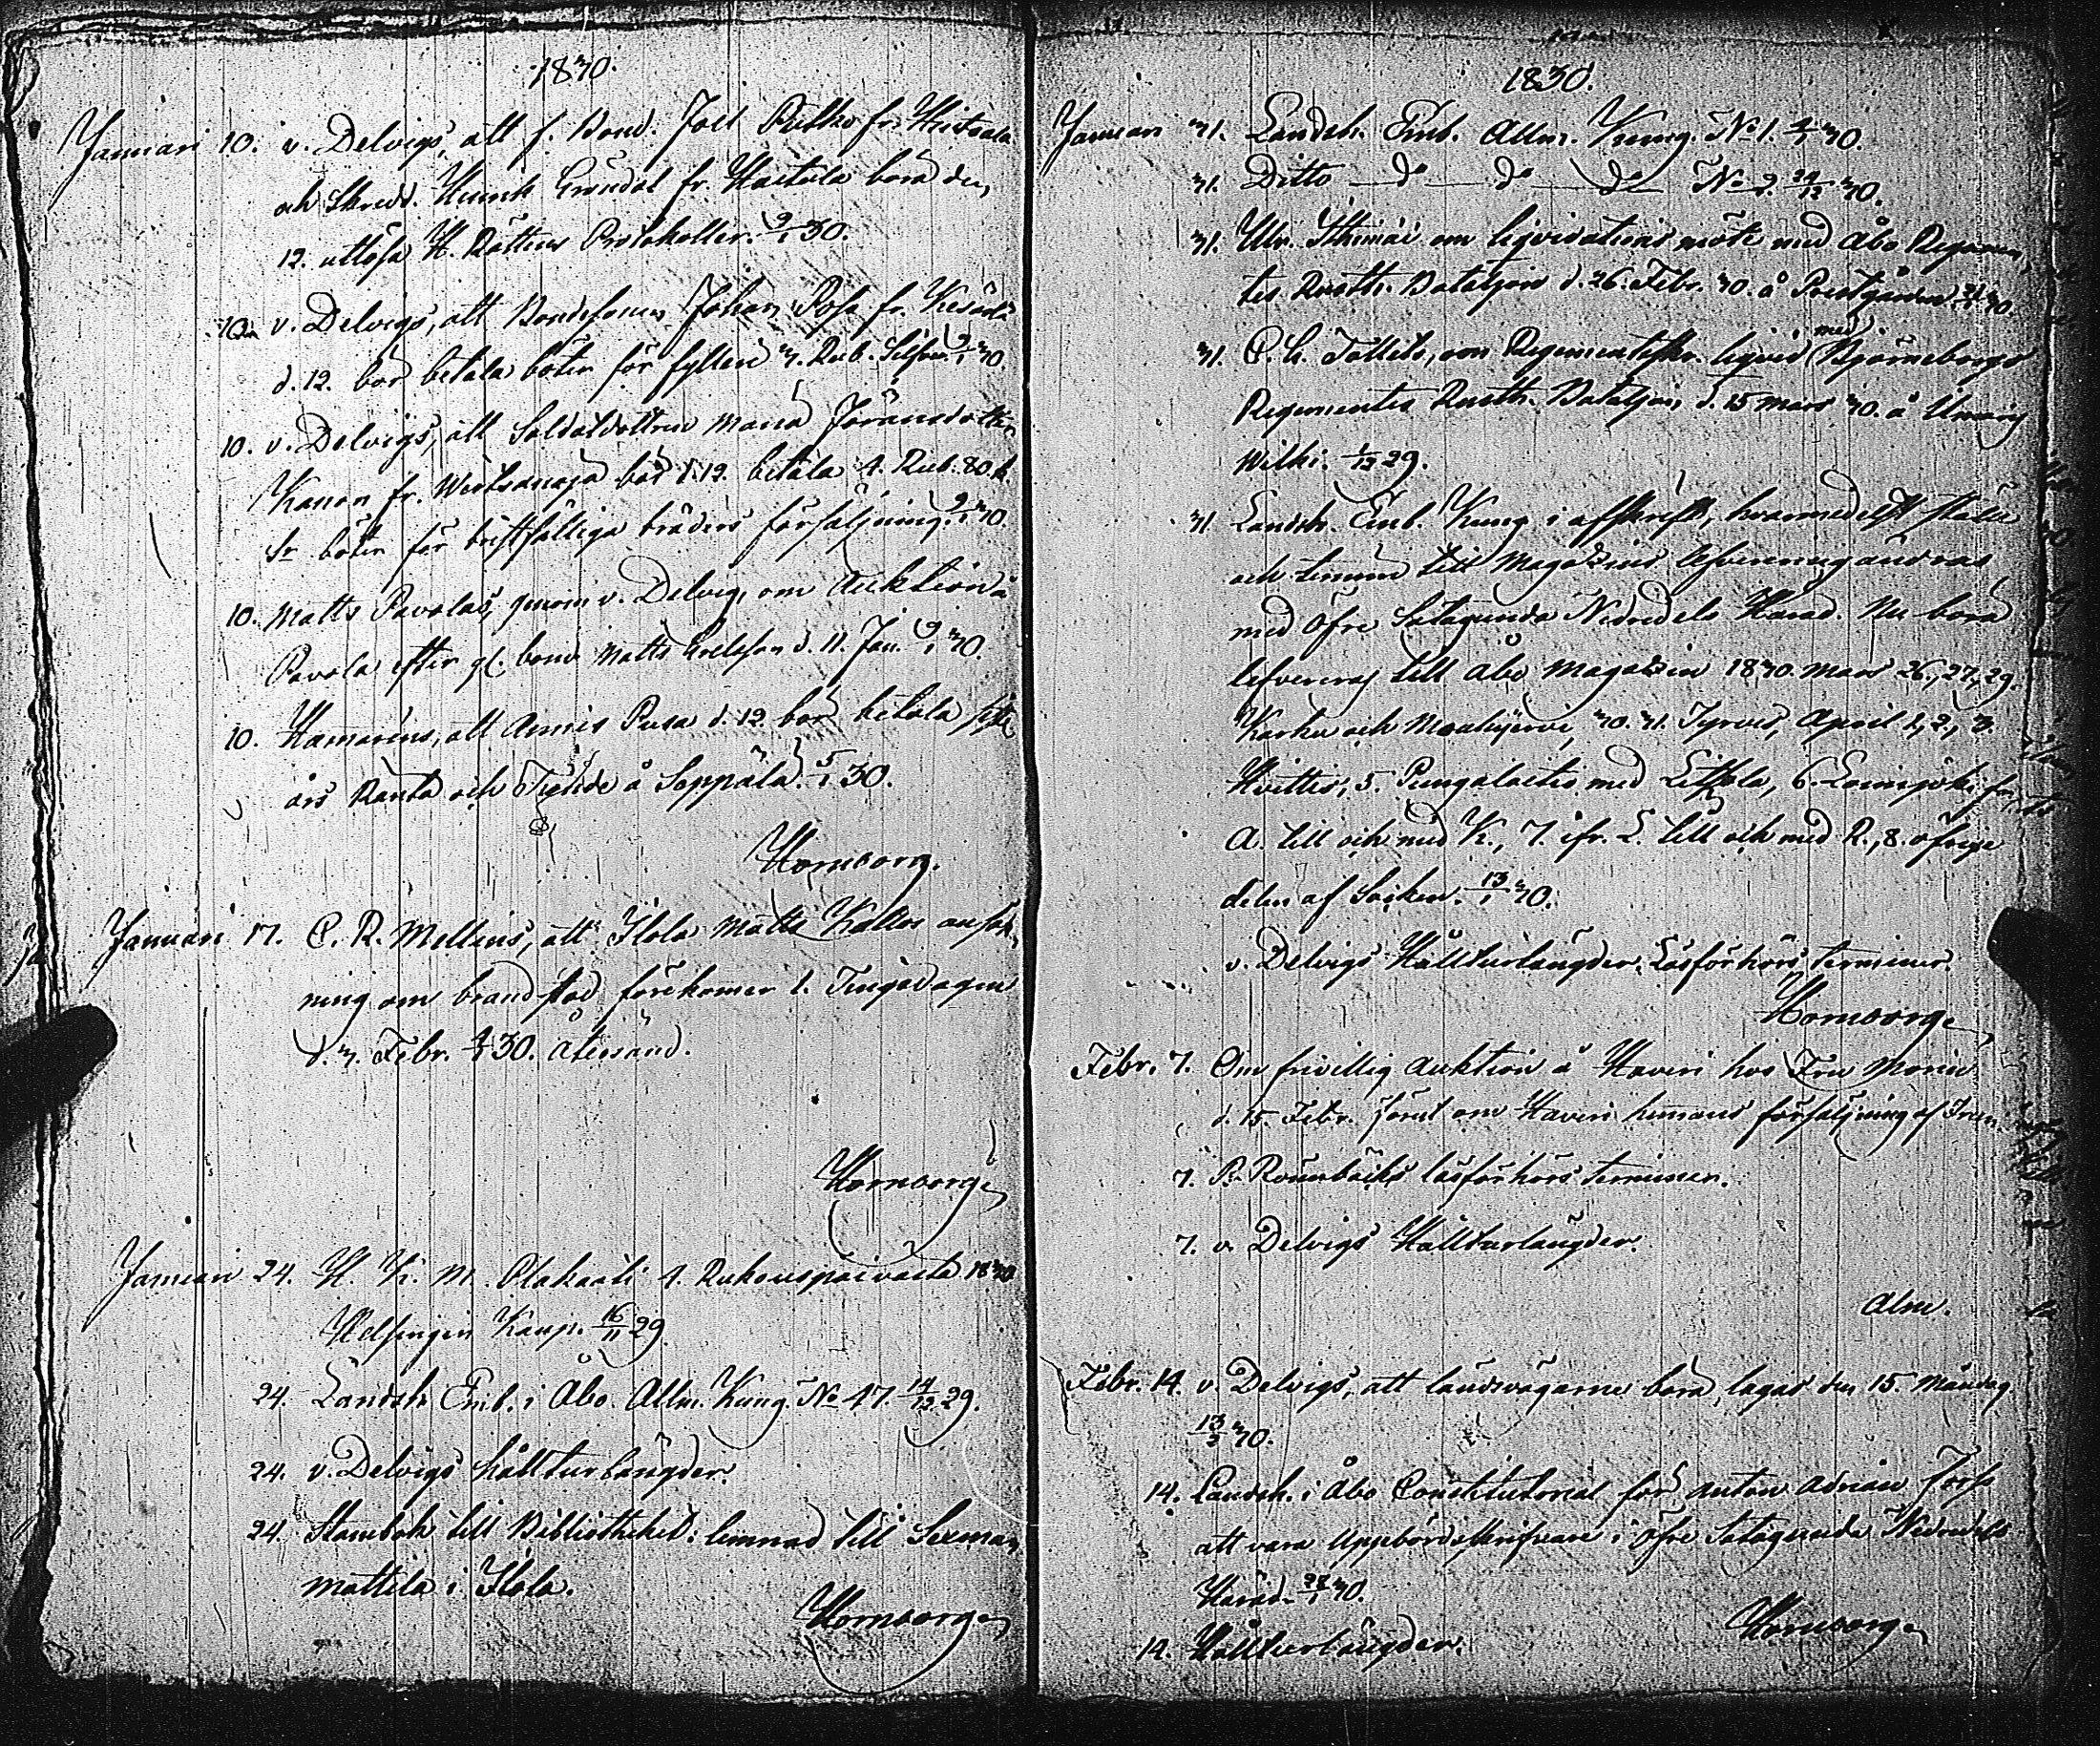 1830.
Januari 10. v. Delvigs, att f. Bond. Joel Putko fr. Heistaala
och Skredd. Henrik Gröndal fr. Haitula böra den
12. utlösa H. Rättens Protokoller. 9/1 30.
10. v. Delvigs, att Bondesonen Johan Posa fr. Kesärlä
d. 12. bör betala böter för fylleri 3. Rub. Silfver. 9/1 30.
10. v. Delvigs, att Soldatdottren Maria Jöransdotter
Kanon fr. bör d. 12. betala 4. Rub. 80 k.
Sr böter för bristfälliga bräders försäljning. 9/1 30.
10. Matts Pavolas, genom v. Delvig, om Auktion å
Pavola efter gl. bond Matts d. 11. Jan. 9/1 30.
10. Hamaréns, att Annis Pusa d. 12. bör betala
års Ränta och Tiende å Seppälä. 5/1 30.
Hornborg.
Januari 17. C. R. Mellins, att Illola Matts Kallas ansök-
ning om brandstod förekommer 1. Tingsdagen
d. 3. Febr. 30. Återsänd.
Hornborg.
Januari 24. H. K. M. Plakaati 4. Rukouspäivästä 1830
Helsingin Kaup. 16/11 29.
24. Landsh. Emb. i Åbo. Allm. Kung. No 47. 14/12 29.
24. v. Delvigs hållturlängder.
24. Stambok till Bibliotheket: lemnad till Sexman
Mattila i Illola.
Hornborg.
1830.
Januari 31. Landsh. Emb. Allm. Kung. No 1. 4/1 30.
31. Ditto do do do No 2. 24/12 30.
31. Ulr. om liqvidations möte med Åbo Regemen-
tes Rusth. Bataljon d. 26. Febr. 30. å Prestgården 30.
31. C. G. Tallets, om Regementsskr. liqvid med Björneborgs
Regementes Rusth. Bataljon, d. 15 Mars 30. å
Wilki. 1/12 29.
31 Landsh. Emb. Kung. i afskrift, hvarmedelst ställe
och termin till Magazins lefverering ändras
med Öfre Satagunda Nedredels Härad. Nu böra
lefvereras till Åbo Magazin 1830. Mars 26., 27., 29.
Karku och Mouhijervi, 30. 31. Tyrvis, April 1., 2., 3.
Hvittis, 5. Pungalaitio med Ziffola, 6. Loimijoki fr.
A. till och med K., 7. ifr. L. till och med R., 8. öfrige
delen af Socken. 13/1 30.
v. Delvigs Hålltürlängder. Läsförhörs terminer.
Hornborg.
Febr. 7. Om frivillig Auktion å Haveri hos Fru Morin
d. 15. Febr. Förut om Haveri hemmans försäljning af Frun.
7. P. Rönnbäcks läsförhörs terminer.
7. v. Delvigs Hålltürlängder.
Alm.
Febr. 14. v. Delvigs, att landsvägarne böra lagas den 15. Måndag
13/2 30.
14. Landsh. i Åbo Constitutorial för Anton Adrian Forss
att vara Uppbördsskrifvare i Öfre Satagunda Nedredels
Härad. 27/1 30.
14. Hålltürlängder.
Hornborg.